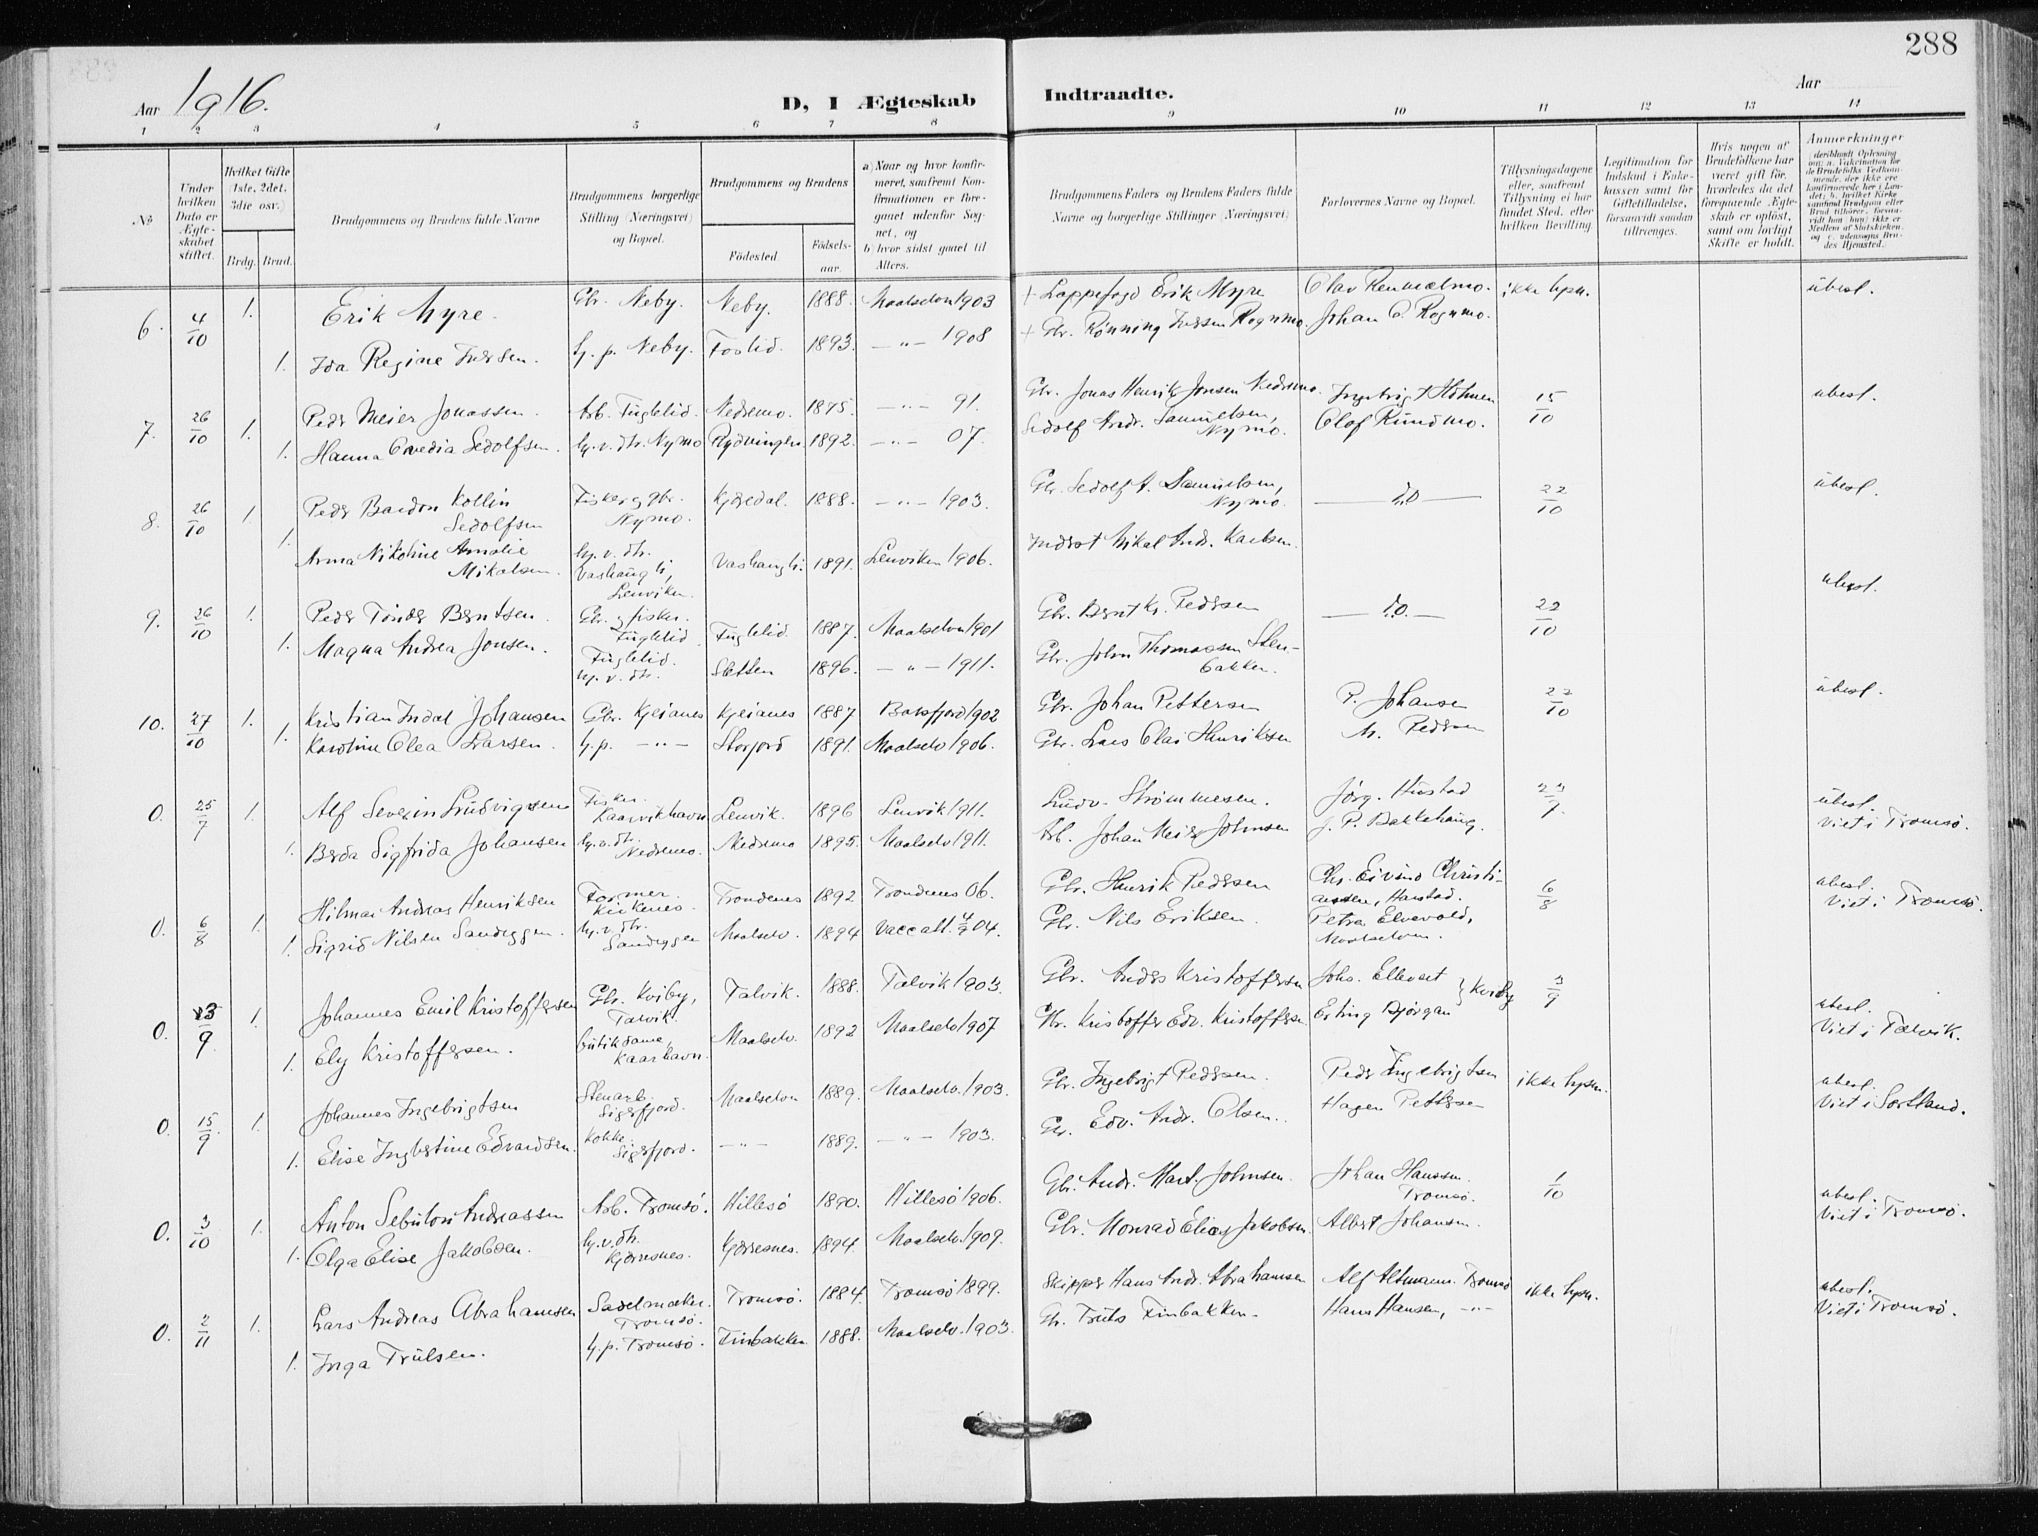 288
Aar 1916.
D, I Ægteskab Indtraadte.
Aar
1 2 3 4 5 6 7 8 9 10 11 12 13 14
No
Under hvilken Dato er Ægteskabet stiftet.
Hvilket Gifte (1ste, 2det, 3die osv.)
Brdg. Brud.
Brudgommens og Brudens fulde Navne
Brudgommens borgerlige Stilling (Næringsvei) og Bopæl.
Brudgommens og Brudens
Fødested. Fødselsaar.
a) Naar og hvor konfirmeret, saafremt Konfirmationen er foregaaet udenfor Sognet, og
b) hvor sidst gaaet til Alters.
Brudgommens Faders og Brudens Faders fulde Navne og borgerlige Stillinger (Næringsvei)
Forlovernes Navne og Bopæl.
Tillysningsdagene eller, saafremt Tillysning ei har fundet Sted, efter hvilken Bevilling.
Legitimation for Indskud i Enkekassen samt for Giftetilladelse, forsaavidt saadan tiltrænges.
Hvis nogen af Brudefolkene har været gift før, hvorledes da det foregaaende Ægteskab er opløst, samt om lovligt Skifte er holdt.
Anmerkninger
6. 4/10 1. Erik Myre. Gbr. Neby. Neby. 1888. Maalselven 1903 + Lappefogd Erik Myre Olav Renmælmo. ikke lysn. ubesl.
1. Ida Regine Iversen. h.p. Neby. Foslid. 1893. —"— 1908 + Gbr. Rønning Iversen Rognmo. Johan C. Rognmo.
7. 26/10 1. Peder Meier Jonassen. Arb. Fuglelid. Nedremo. 1875. —"— 91. Gbr. Jonas Henrik Jonsen Nedremo. Ingebrigt Holmen 15/10 ubesl.
1. Hanna Ovedia Sedolfsen. h.v.dtr. Nymo Rydningen 1892. —"— 07. Sedolf Andr. Samuelsen, Nymo. Olof Rundmo.
8. 26/10 1. Peder Bardon Kollin Sedolfsen Fisker og gbr. Nymo. 1888. —"— 1903. Gbr. Sedolf A. Samuelsen, Nymo. — do — 22/10 ubesl.
1. Anna Nikoline Amalie Mikalsen. h.v.dtr. Vashaugli, Lenviken. Vashaugli. 1891. Lenviken 1906. Inderst Mikal Andr. Karlsen.
9. 26/10 1. Peder Tønder Berntsen. Gbr. og fisker. Fuglelid Fuglelid. 1887. Maalselven 1901 Gbr. Bernt Kr. Pedersen — do. — 22/10 ubesl.
1. Magna Andrea Jonsen. Fuglelid. h.v.dtr. Sletten 1896. —"— 1911. Gbr. John Thomassen Stenbakken.
10. 27/10 1. Kristian Indal Johansen Gbr. Kjeianes Kjeianes 1887 Balsfjord 1902 Gbr. Johan Pettersen P. Johansen 22/10 ubesl.
1. Karoline Olea Larsen. h.p. —"— Storfjord 1891. Maalselv 1906. Gbr. Lars Olai Henriksen M. Pedersen
0. 25/7 1. Alf Severin Ludvigsen Fisker. Kaarvikhavn Lenvik. 1896 Lenvik 1911. Ludv. Strømmesen. Jørg. Hustad 23/7. ubesl. Viet i Tromsø.
1. Berda Sigfrida Johansen h.v.dtr. Nedremo. Nedremo 1895. Maalselv 1911. Arb. Johan Meier Johnsen J. P. Bakkehaug.
0. 6/8 1. Hilmar Andreas Henriksen Formér. Kirkenes. Trondenes 1892 Trondenes 06. Gbr. Henrik Pedersen Chr. Eivind Christiansen, Harstad. 6/8 ubesl. Viet i Tromsø.
1. Sigrid Nilsen Sandeggen. h.v.dtr. Sandeggen Maalselv. 1894 Vacc att. 4/7 04. Gbr. Nils Eriksen. Petra Elvevold, Maalselven.
0. 13/9 1. Johannes Emil Kristoffersen Gbr. Kviby, Talvik. Talvik. 1888. Talvik 1903. Gbr. Anders Kristoffersen Johs. Ellevset } Kviby 3/9 ubesl. Viet i Talvik.
1. Ely Kristoffersen. butikdame, Kaarhavn. Maalselv. 1892 Maalselv 1907 Gbr. Kristoffer Edv. Kristoffersen. Erling Bjørgan
0. 15/9. 1. Johannes Ingebrigtsen Stenarb. Sigerfjord. Maalselven 1889. Maalselv. 1903. Gbr. Ingebrigt Pedersen. Peder Ingebrigtsen ikke lysn. ubesl. Viet i Sortland.
1. Elise Ingbertine Edvardsen. Kokke. Sigerfjord. —"— 1889. —"— 1903. Gbr. Edv. Andr. Olsen. Hagen Pettersen
0. 3/10 1. Anton Sebulon Andreassen Arb. Tromsø. Hillesø 1890. Hillesø 1906. Gbr. Andr. Mart. Johnsen. Johan Hanssen. Tromsø. 1/10 ubesl. Viet i Tromsø.
1. Olga Elise Jakobsen. h.v.dtr. Kjerresnes. Kjerresnes. 1894. Maalselv. 1909. Gbr. Monrad Elias Jakobsen Albert Johansen.
0. 2/11 1. Lars Andreas Abrahamsen Sadelmaker. Tromsø. Tromsø. 1884. Tromsø 1899. Skipper Hans Andr. Abrahamsen Alf Altmann. Tromsø ikke lysn. ubesl. Viet i Tromsø.
1. Inga Trulsen. h.p. Tromsø. Finbakken. 1888. Maalselv. 1903. Gbr. Truls Finbakken. Hans Hansen, —"—